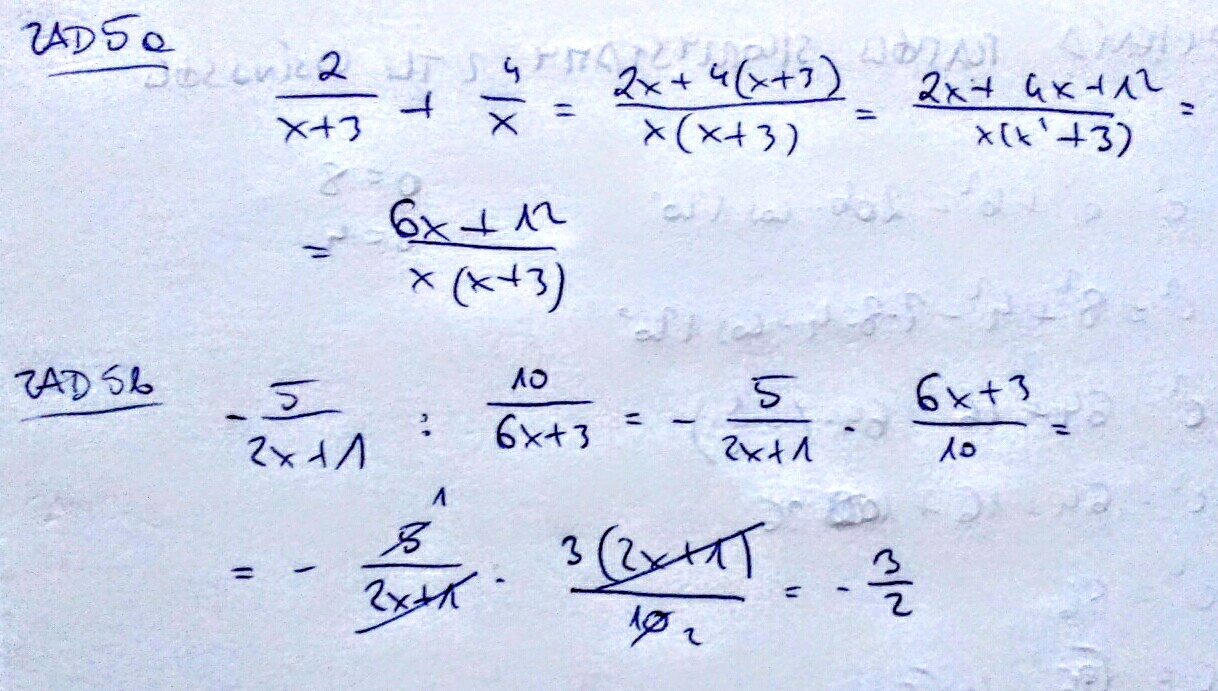 ZAD 5a
2/(x+3) + 4/x = (2x + 4(x+3))/(x(x+3)) = (2x + 4x + 12)/(x(x+3)) =
= (6x + 12)/(x(x+3))
ZAD 5b
- 5/(2x+1) : 10/(6x+3) = - 5/(2x+1) · (6x+3)/10 =
= - 5 1/(2x+1) · 3(2x+1)/(10 2) = - 3/2